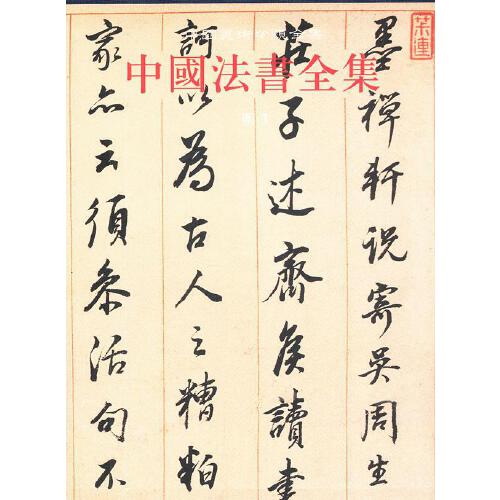 中國法書全集
墨禪軒说寄吴周生
莊子述齊侯讀書
訶以為古人之糟粕
家亦云須参活句不